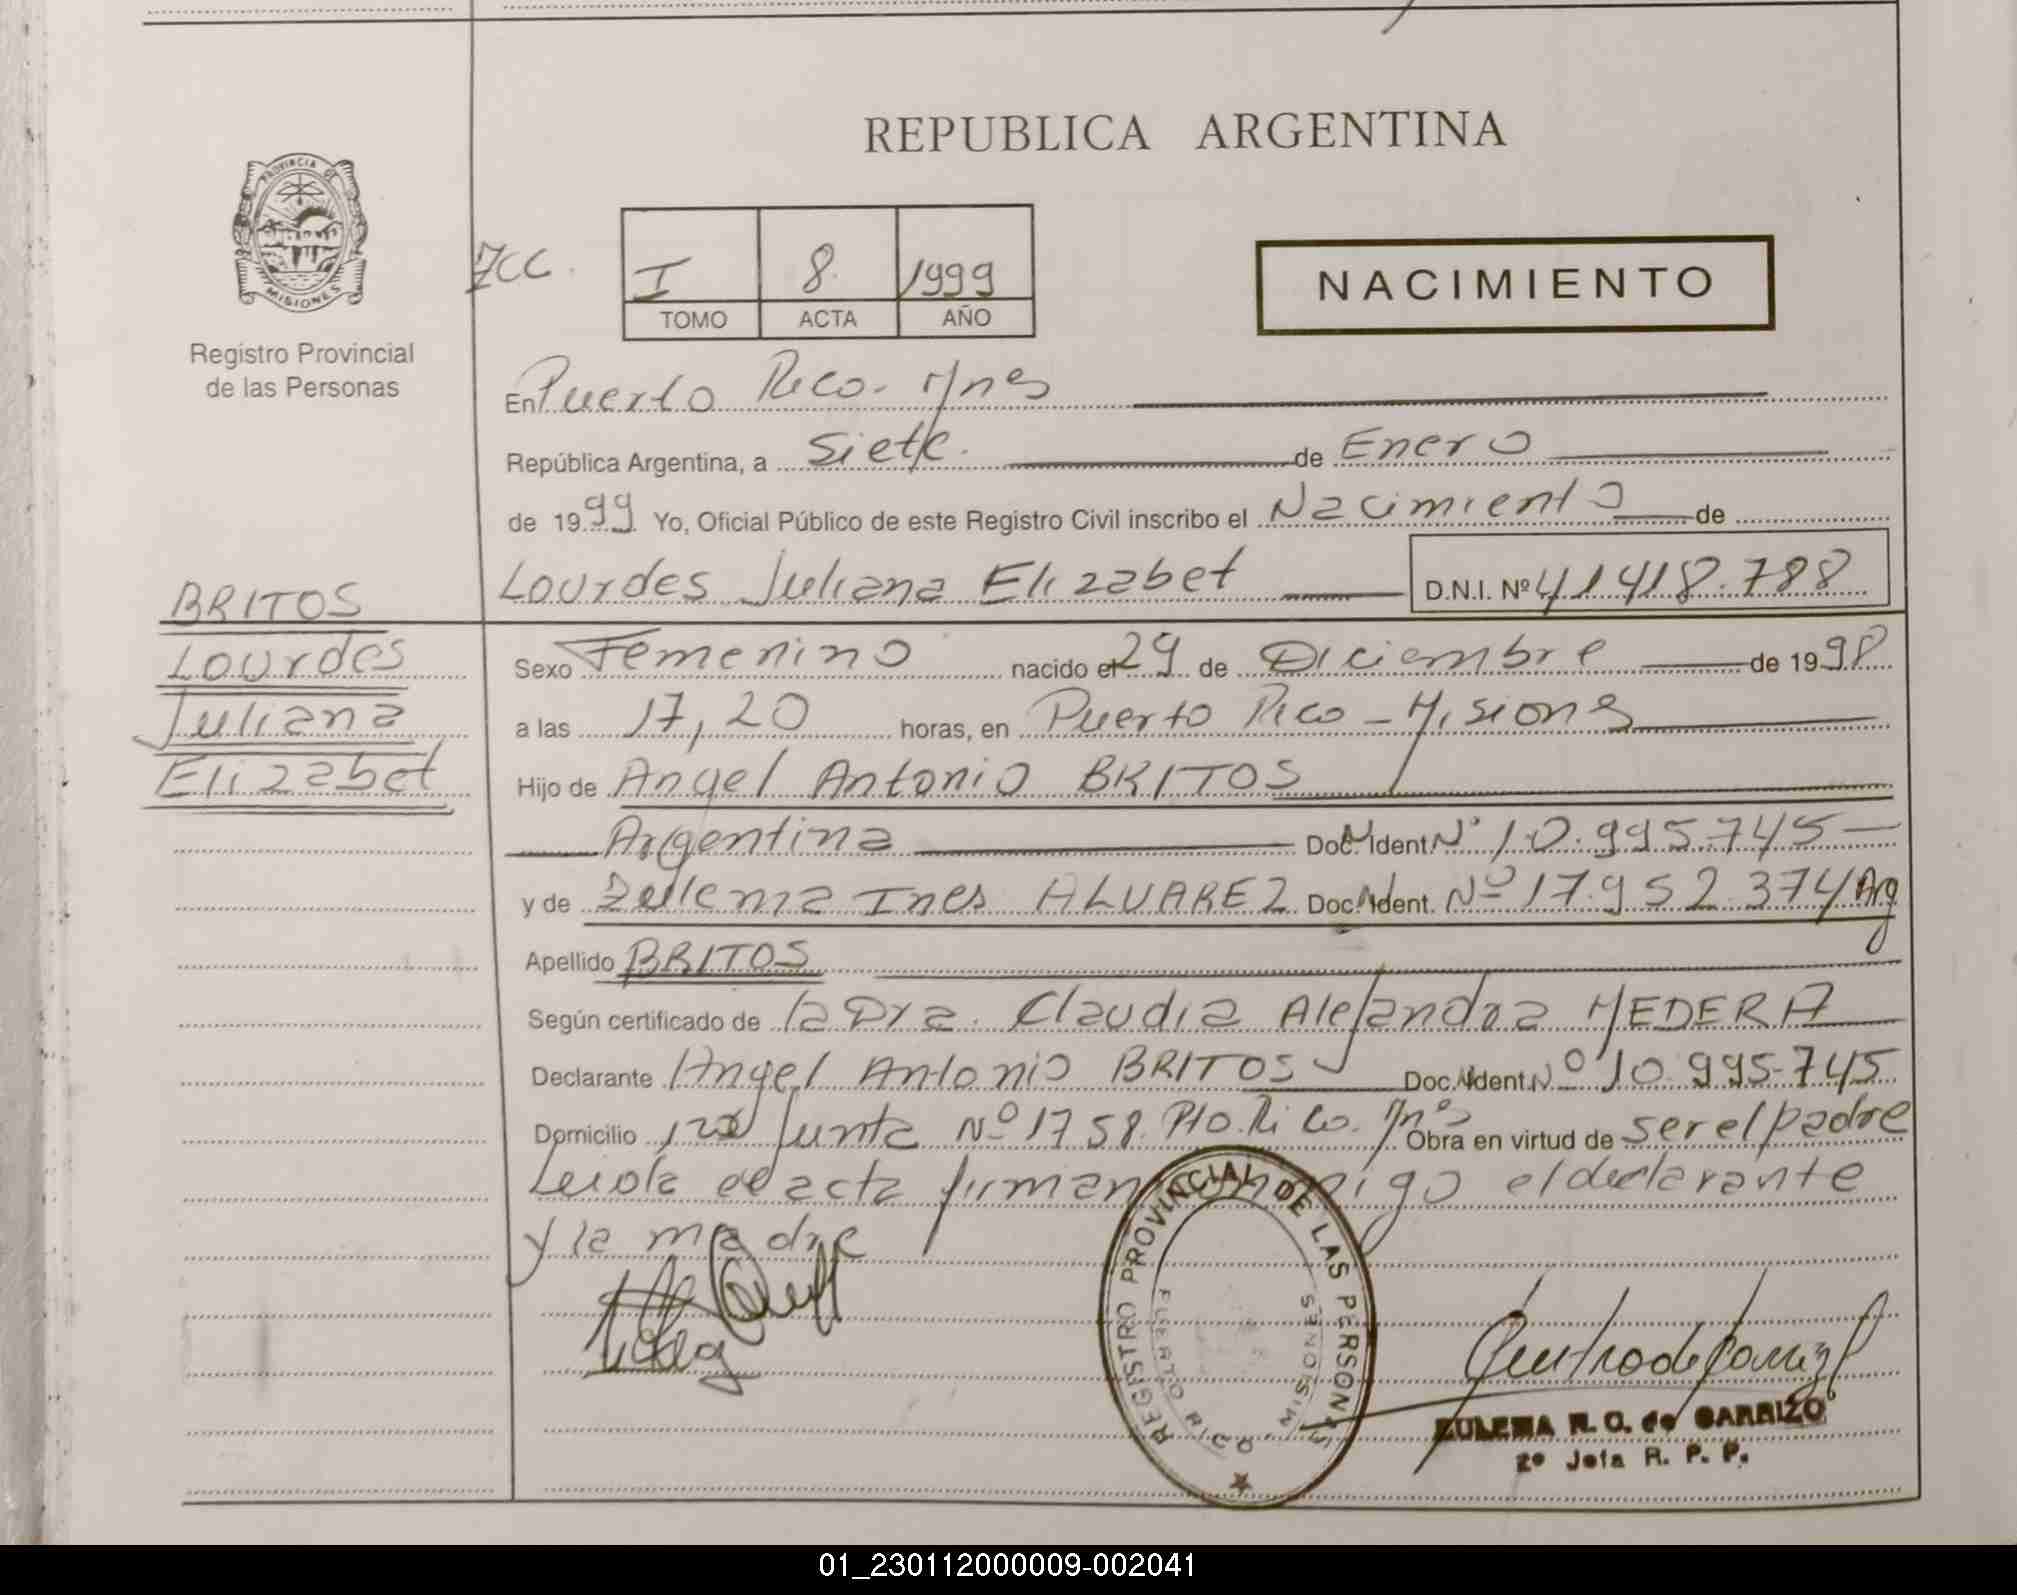 REPUBLICA ARGENTINA
PROVINCIA DE
MISIONES
Registro Provincial
de las Personas
I 8 1999
TOMO ACTA AÑO
NACIMIENTO
En Puerto Rico. Mnes
República Argentina, a Siete de Enero
de 1999 Yo, Oficial Público de este Registro Civil inscribo el Nacimiento de
Lourdes Juliana Elizabet D.N.I. Nº 41418.788
BRITOS
Lourdes
Juliana
Elizabet
Sexo Femenino nacido el 29 de Diciembre de 1998
a las 17,20 horas, en Puerto Rico - Misiones
Hijo de Angel Antonio BRITOS
Argentina Doc. Ident. Nº 10.995.745
y de Zulema Ines ALVAREZ Doc. Ident. Nº 17.952.374 Arg
Apellido BRITOS
Según certificado de la Dra. Claudia Alejandra MEDERA
Declarante Angel Antonio BRITOS Doc. Ident. Nº 10.995.745
Domicilio Junta Nº 1758. Pto. Rico. Mnes Obra en virtud de ser el padre
Leida el acta firman conmigo el declarante
y la madre
REGISTRO PROVINCIAL DE LAS PERSONAS
PUERTO RICO MISIONES
ZULEMA R. O. de CARRIZO
2º Jefa R. P. P.
01_230112000009-002041